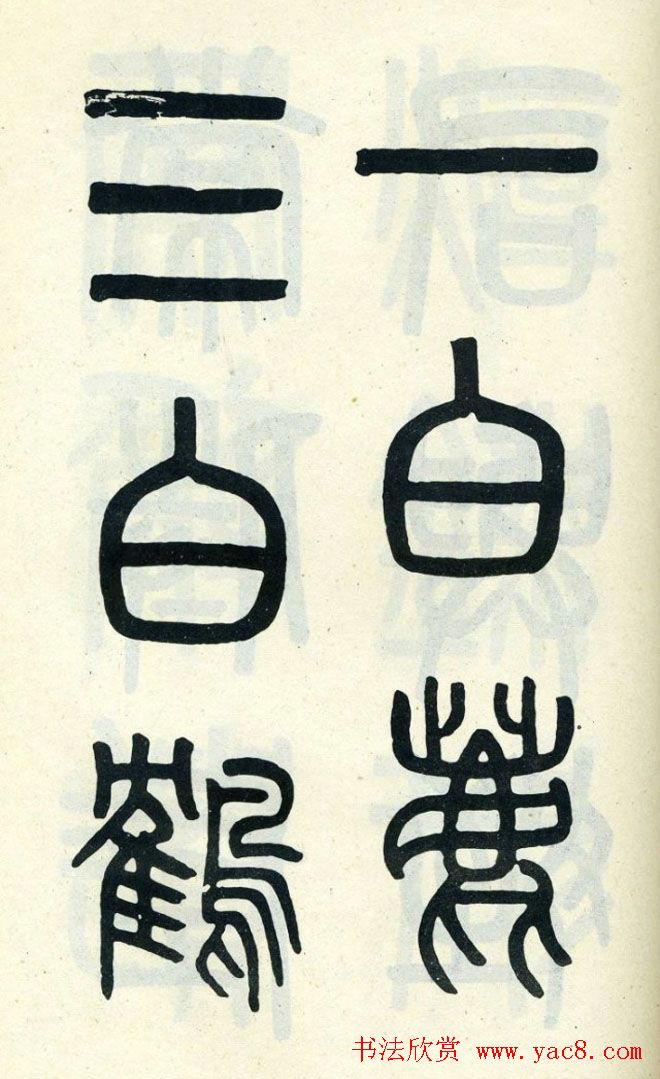 一白鹿
三白鶴
书法欣赏 www.yac8.com